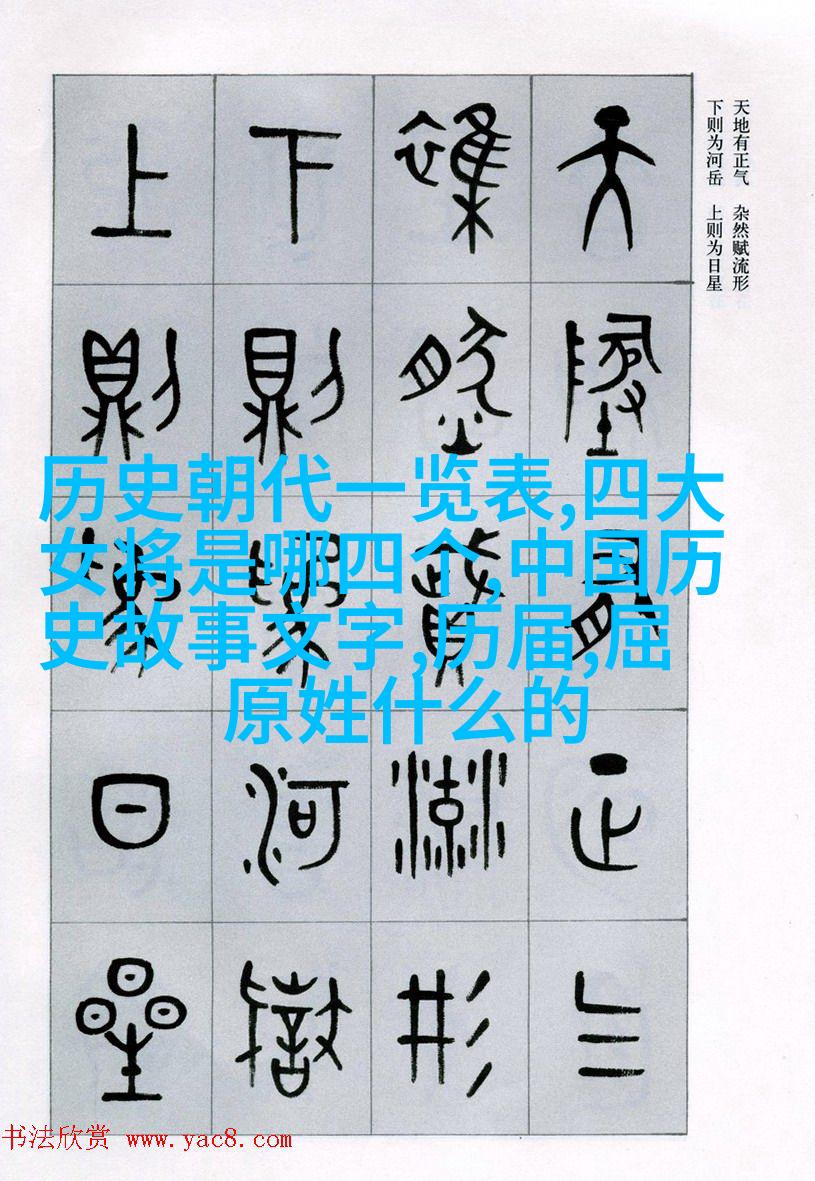 天地有正气 杂然赋流形
下则为河岳 上则为日星
天地有正气
雜然賦流形
下則為河嶽
上則為日星
历史朝代一览表,四大
女将是哪四个,中国历
史故事文字,历届,屈
原姓什么的
书法欣赏 www.yac8.com